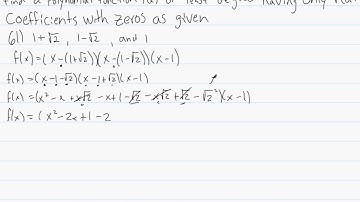 find a polynomial function of least degree having only real
Coefficients with zeros as given
61) 1+√2, 1-√2, and 1
f(x)=(x-(1+√2))(x-(1-√2))(x-1)
f(x)=(x-1-√2)(x-1+√2)(x-1)
f(x)=(x²-x+x√2-x+1-√2-x√2+√2-√2²)(x-1)
f(x)=(x²-2x+1-2